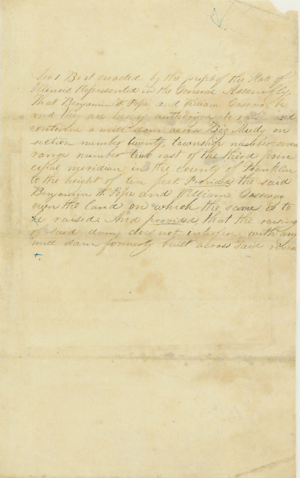 Sec 1 Be it enacted by the people of the State of
Illinois Represented in the General Assembly
That Benjamin and William be
and they are hereby authorized to and
continue a mill dam across Big Muddy on
section number twenty, township number
range number two east of the third prin
cipal meridian in the County of Franklin
to the height of ten feet Provided the said
Benjamin and William
own the land on which the same is to
be raised And provided that the raising
of said dam does not interfere with any
mill dam formerly built across said